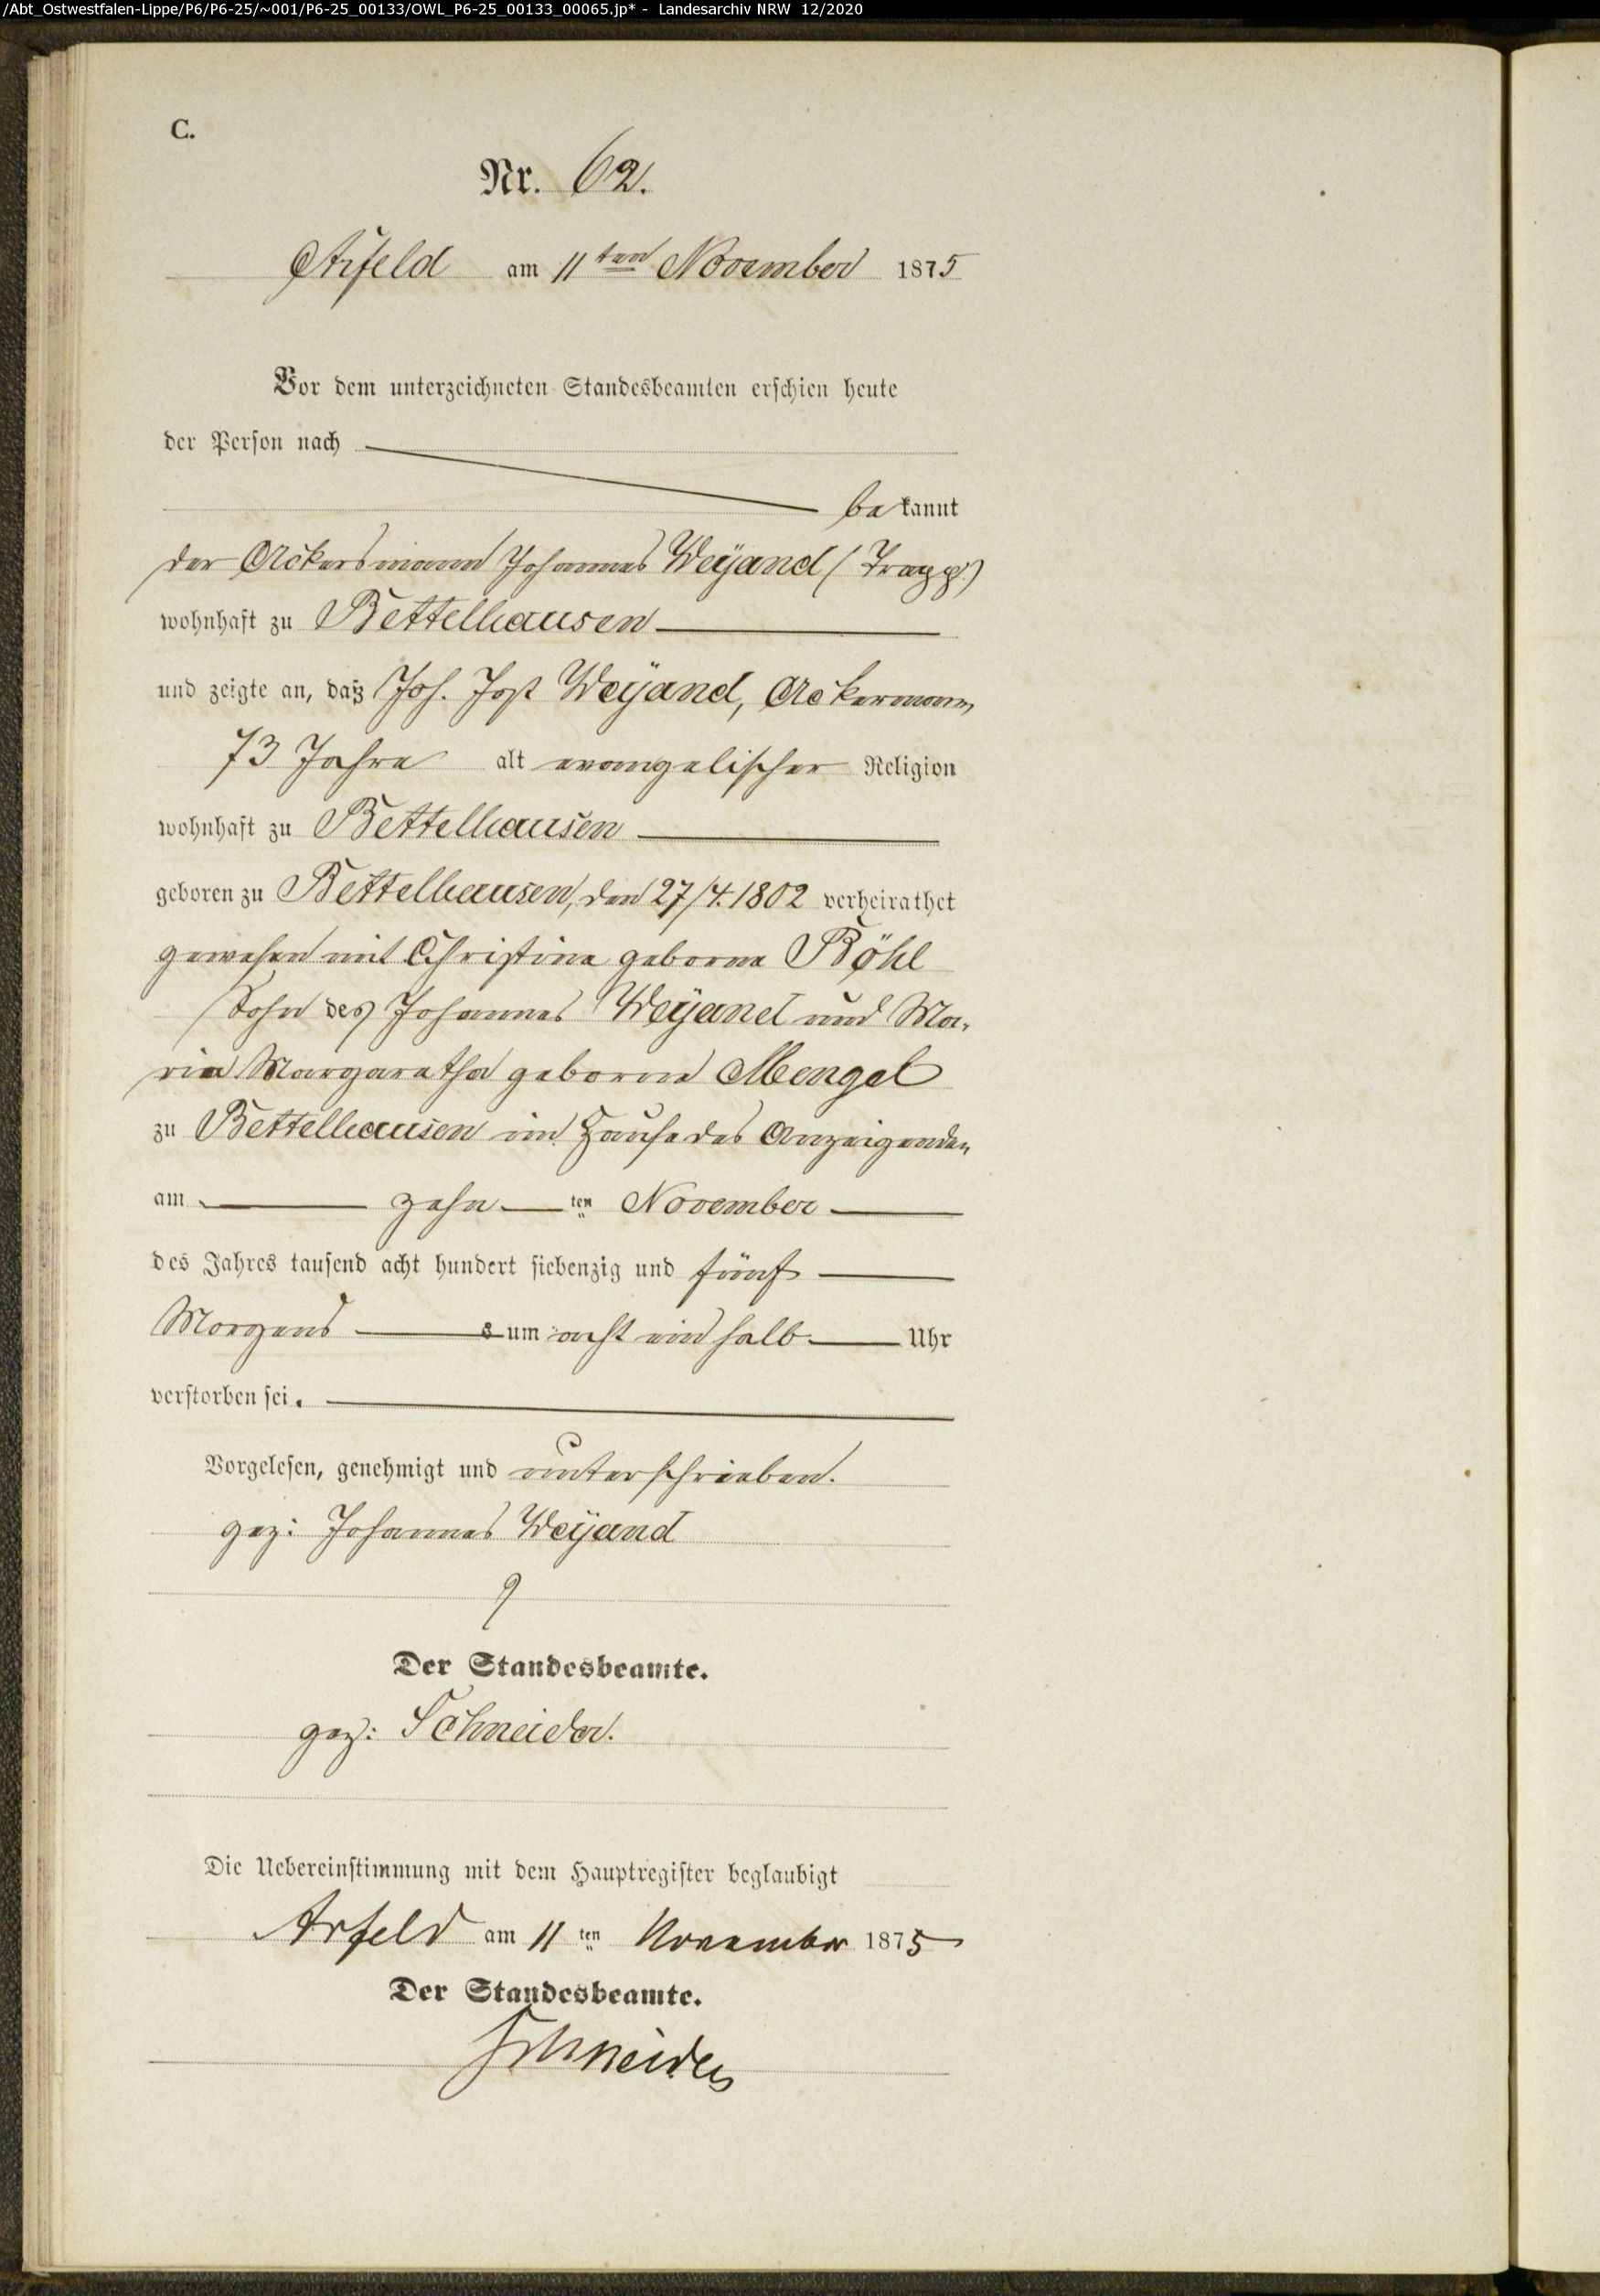 /Abt_Ostwestfalen-Lippe/P6/P6-25/~001/P6-25_00133/OWL_P6-25_00133_00065.jp* - Landesarchiv NRW 12/2020
C.
Nr. 62.
Arfeld am 11ten November 1875
Vor dem unterzeichneten Standesbeamten erschien heute
der Person nach
bekannt
der Ackersmann Johannes Weÿand (Trapp)
wohnhaft zu Bettelhausen
und zeigte an, daß Joh. Jost Weÿand, Ackermann,
73 Jahre alt evangelischer Religion
wohnhaft zu Bettelhausen
geboren zu Bettelhausen, den 27/4. 1802 verheirathet
gewesen mit Christine geborne Böhl
Sohn des Johannes Weÿand und Ma-
ria Margaretha geborne Mengel
zu Bettelhausen im Hause des Anzeigenden
am zehn ten November
des Jahres tausend acht hundert siebenzig und fünf
Morgens um acht ein halb Uhr
verstorben sei.
Vorgelesen, genehmigt und unterschrieben.
gez: Johannes Weÿand
Der Standesbeamte.
gez: Schneider.
Die Uebereinstimmung mit dem Hauptregister beglaubigt
Arfeld am 11 ten November 1875
Der Standesbeamte.
Schneider